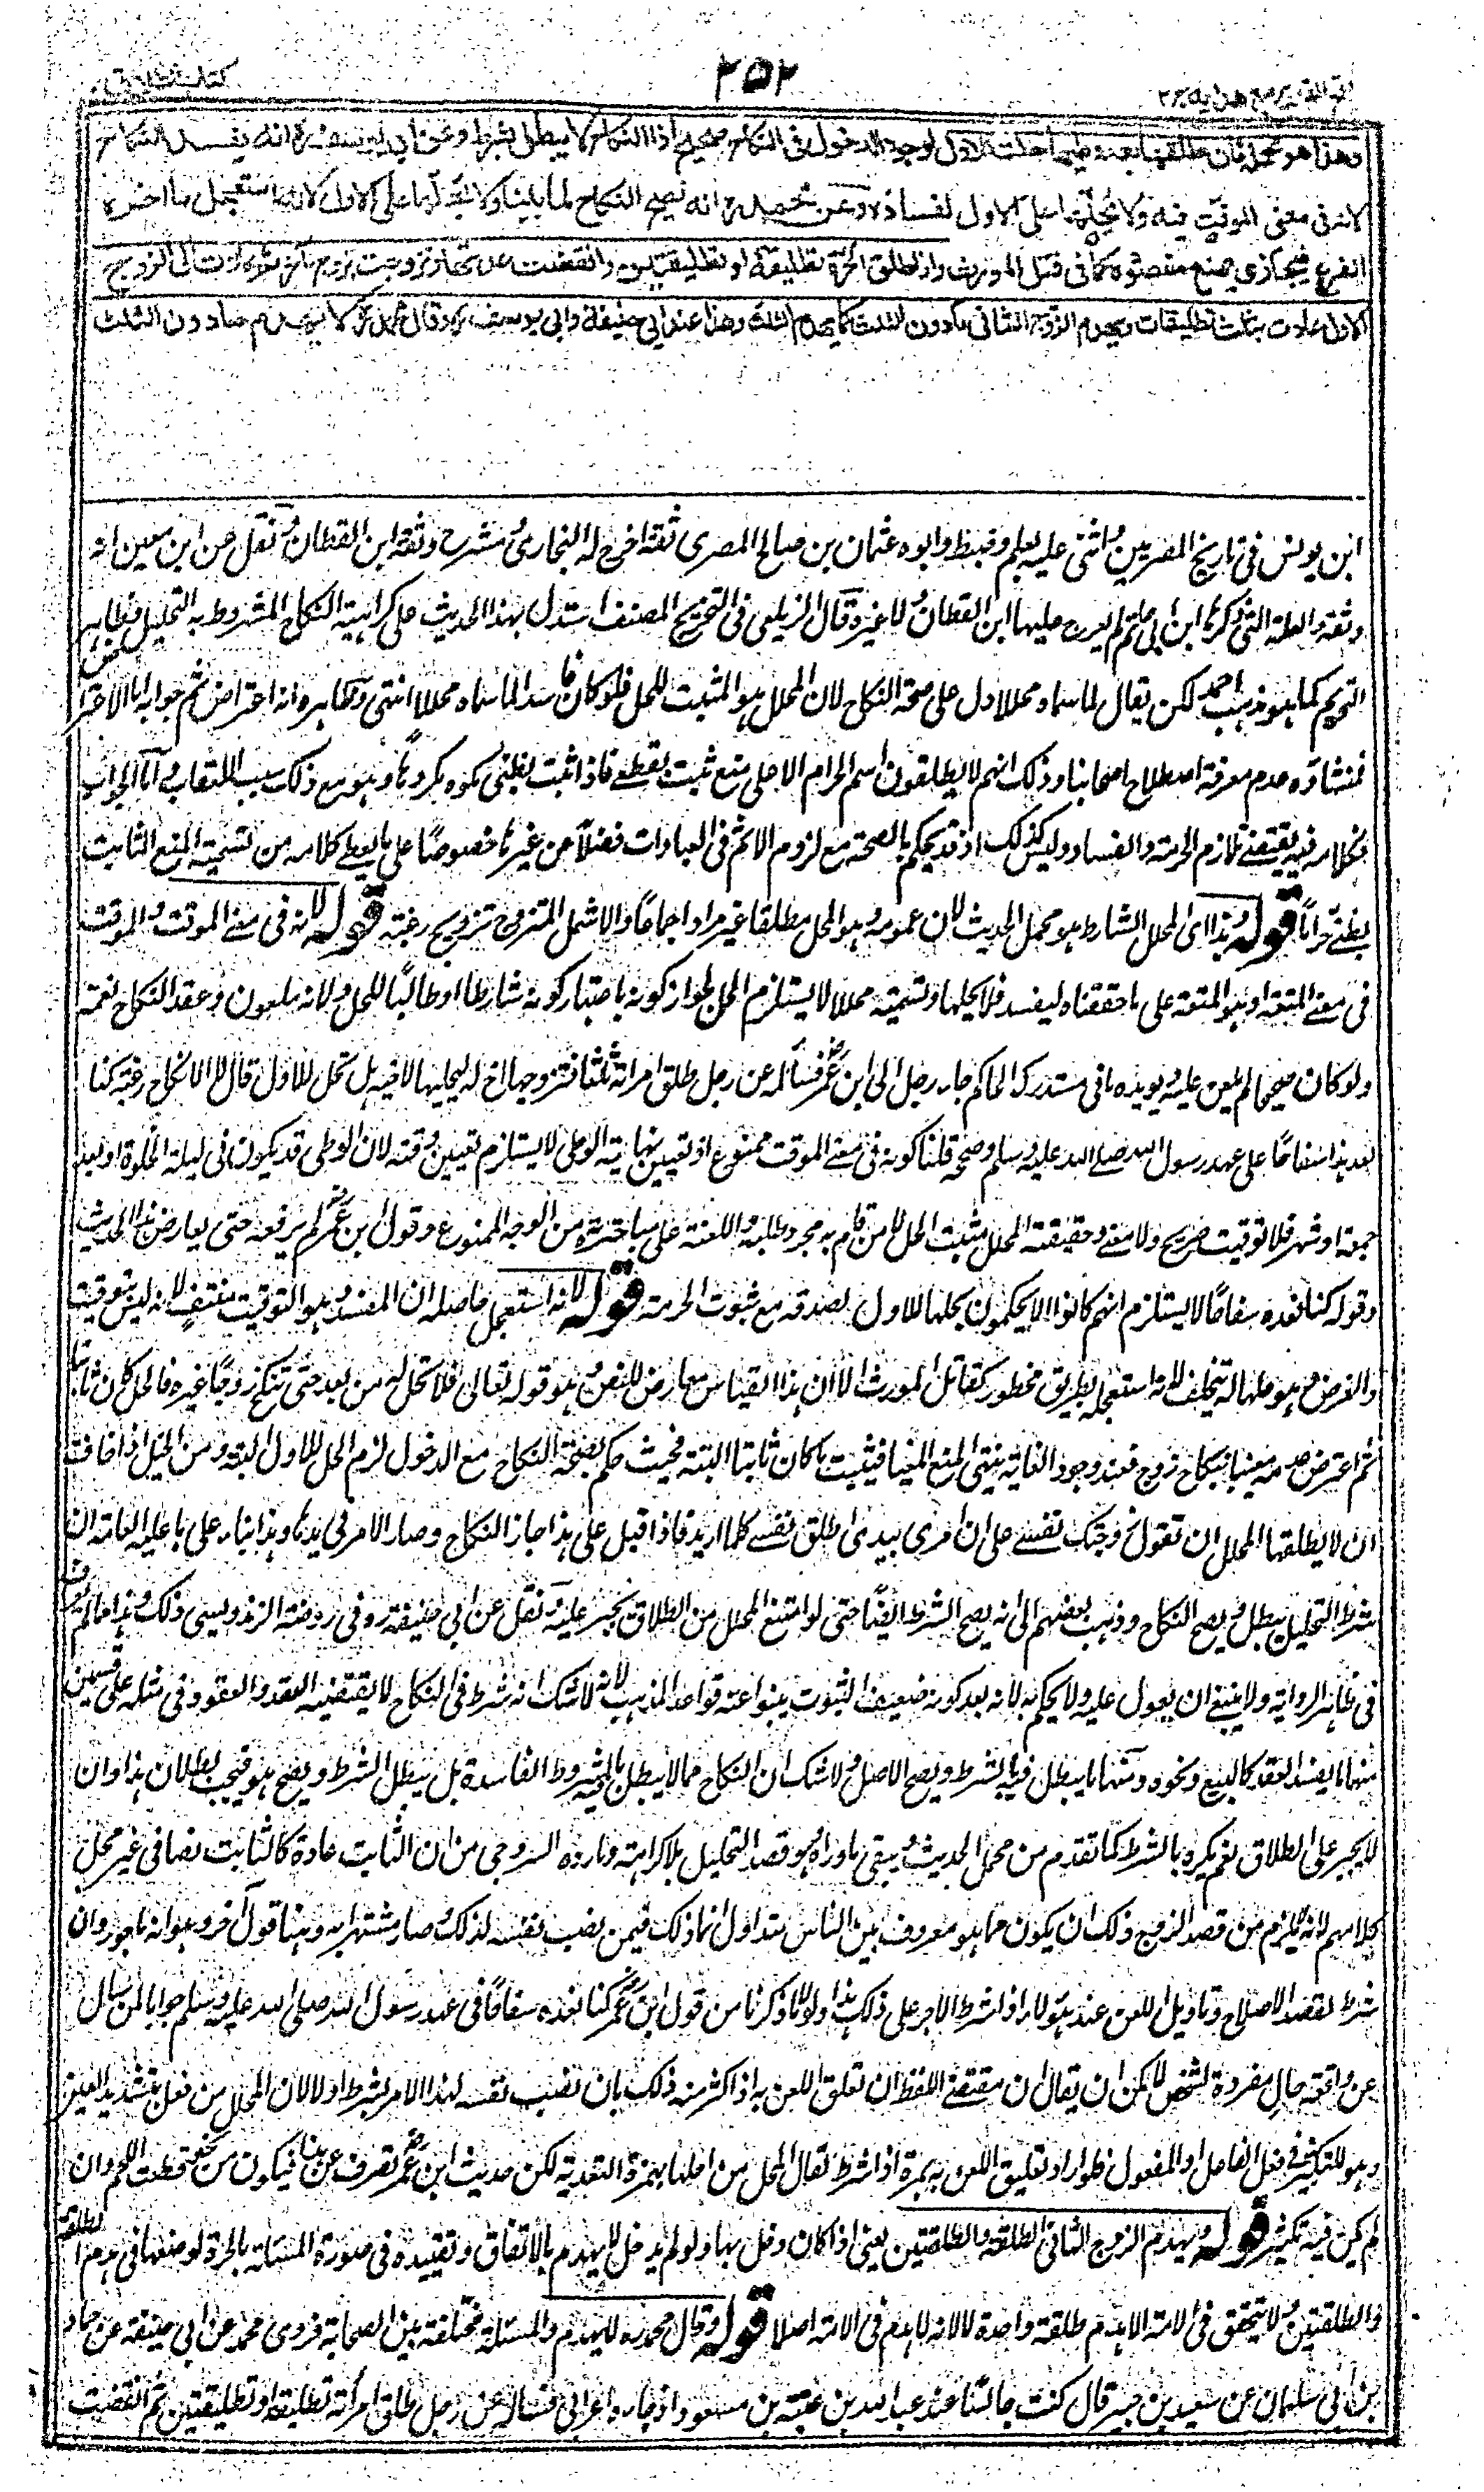 ۲۵۲
فتح القدير مع هدايه ج۲
كتاب الطلاق
وهذا هو محمله فان طلقها بعد وطيها حلت للاول لوجود الدخول في النكاح صحيح اذ النكاح لا يبطل بالشرط وعن ابي يوسف ره انه يفسد النكاح
لانه في معنى الموقت فيه ولا يحلها على الاول لفساده وعن محمد ره انه يصح النكاح لما بينا ولا يحلها على الاول لانه استعجل ما اخره
الشرع فيجازى بمنع مقصوده كما في قتل المورث واذا طلق الحرة تطليقة او تطليقتين وانقضت عدتها وتزوجت بزوج اخر ثم عادت الى الزوج
الاول عادت بثلث تطليقات ويهدم الزوج الثاني مادون الثلث كما يهدم الثلث وهذا عند ابي حنيفة وابي يوسف ره وقال محمد ره لا يهدم ما دون الثلث
ابن يونس في تاريخ المصريين واثنى عليه بعلم وضبط وابوه عثمان بن صالح المصرى ثقة اخرج له البخارى ومشرح وثقه ابن القطان ونقل عن ابن معين انه
وثقه والعلة التي ذكرها ابن ابي حاتم لم يعرج عليها ابن القطان ولا غيره قال الزيلعى في التخريج المصنف استدل بهذا الحديث على كراهية النكاح المشروط به التحليل وظاهره
التحريم كما هو مذهب احمد لكن يقال لما سماه محللا دل على صحة النكاح لان المحلل هو المثبت للحل فلو كان فاسدا لما سماه محللا انتهى وظاهره انه اعتراض ثم جوابه اما الاعتراض
فمنشاؤه عدم معرفة اصطلاح اصحابنا وذلك انهم لا يطلقون اسم الحرام الا على منع ثبت بقطعي فاذا ثبت بظني سموه مكروها وهو مع ذلك سبب للعقاب واما الجواب
فكلامه فيه يقتضي تلازم الحرمة والفساد وليس كذلك اذ قد يحكم بالصحة مع لزوم الاثم في العبادات فضلا عن غيرها خصوصا على ما يعطي كلامه من تسمية المنع الثابت
بظني حراما قوله وهذا اى المحلل الشارط هو محمل الحديث لان عمومه وهو المحل مطلقا غير مراد اجماعا والا شمل المتزوج تزويج رغبة قوله لانه في معنى الموقت والموقت
في معنى المتعة او هو المتعة على ما حققناه ليفسد فلا يحلها وتسميته محللا لا يستلزم الحل لجواز كونه باعتبار كونه شارطا او طالبا للحل ولانه ملعون وعقد النكاح نعمة
ولو كان صحيحا لم يلعن عليه ويؤيده ما في مستدرك الحاكم جاء رجل الى ابن عمر فساله عن رجل طلق امراته ثلثا فتزوجها اخ له ليحلها لاخيه هل تحل للاول قال لا الا نكاح رغبة كنا
نعد هذا سفاحا على عهد رسول الله صلى الله عليه وسلم وصححه قلنا كونه في معنى الموقت ممنوع اذ تعيين نهاية الوطي لا يستلزم تعيين وقته لان الوطي قد يكون في ليلة الخلوة او بعد
جمعة او شهر فلا توقيت صريح ولا معنى وحقيقة المحلل مثبت الحل لا من قام به مجرد طلبه واللعنة على مباشرته من الوجه الممنوع وقول ابن عمر لم يرفعه حتى يعارض هذا الحديث
وقوله كنا نعده سفاحا لا يستلزم انهم كانوا لا يحكمون بحلها للاول لصدقه مع ثبوت الحرمة قوله لانه استعجل حاصله ان المفسد وهو التوقيت منتف لانه ليس توقيتا
والغرض وهو حلها له يتخلف لانه استعجله بطريق محظور كقاتل المورث الا ان هذا القياس معارض للنص وهو قوله تعالى فلا تحل له من بعد حتى تنكح زوجا غيره فالحل كان ثابتا
ثم اعترض حرمة مغياة بنكاح زوج فعند وجود الغاية ينتهى المنع المغيا فيثبت ما كان ثابتا البتة فحيث حكم بصحة النكاح مع الدخول لزم الحل للاول البتة ومن الحيل اذا خافت
ان لا يطلقها المحلل ان تقول زوجتك نفسي على ان امرى بيدى اطلق نفسي كلما اريد فاذا قبل على هذا جاز النكاح وصار الامر في يدها وهذا بناء على ما عليه العامة ان
شرط التحليل يبطل ويصح النكاح وذهب بعضهم الى انه يصح الشرط ايضا حتى لو امتنع المحلل من الطلاق يجبر عليه ونقل عن ابي حنيفة ره وفي روضة الزندويسى ذلك وهذا مما لم يعرف
في ظاهر الرواية ولا ينبغي ان يعول عليه ولا يحكم به لانه بعد كونه ضعيف الثبوت ينبو عنه قواعد المذهب لانه لا شك انه شرط في النكاح لا يقتضيه العقد والعقود في مثله على قسمين
منها ما يفسد العقد كالبيع ونحوه ومنها ما يبطل فيه الشرط ويصح الاصل ولا شك ان النكاح مما لا يبطل بالشروط الفاسدة بل يبطل الشرط ويصح هو فيجب بطلان هذا وان
لا يجبر على الطلاق نعم يكره بالشرط كما تقدم من محمل الحديث ويبقى ما وراه وهو قصد التحليل بلا كراهة وما رده السروجى من ان الثابت عادة كالثابت نصا في غير محل
كلامهم لانه لا يلزم من قصد الزوج ذلك ان يكون مما هو معروف بين الناس متداول انما ذلك فيمن نصب نفسه لذلك وصار مشتهرا به وهنا قول آخر وهو انه ماجور وان
شرط لقصد الاصلاح وتاويل اللعن عند هؤلاء اذا شرط الاجر على ذلك هذا ولولا ما ذكرنا من قول ابن عمر كنا نعده سفاحا في عهد رسول الله صلى الله عليه وسلم جوابا لمن سال
عن واقعة حال مفردة لشخص لامكن ان يقال ان مقتضى اللفظ ان تعلق اللعن به اذا اكثر منه ذلك بان نصب نفسه لهذا الامر بشرط او لا لان المحلل من فعل بتشديد العين
وهو للتكثير في فعل الفاعل او المفعول فلو اراد تعليق اللعن به بمرة اذا شرط لقال المحل من احلها بهمزة التعدية لكن حديث ابن عمر يصرف عن هذا فيكون من نحو قطعت اللحم وان
لم يكن فيه تكثير قوله ويهدم الزوج الثاني الطلقة والطلقتين يعنى اذا كان دخل بها ولو لم يدخل لا يهدم بالاتفاق وتقييده في صورة المسئلة بالحرة لوضعها في هدم الطلقة
والطلقتين ولا يتحقق في الامة الا هدم طلقة واحدة لا لانه لا هدم في الامة اصلا قوله وقال محمد ره لا يهدم والمسئلة مختلفة بين الصحابة فروى محمد عن ابي حنيفة عن حماد
بن ابي سليمان عن سعيد بن جبير قال كنت جالسا عند عبد الله بن عتبة بن مسعود اذ جاءه اعرابي فساله عن رجل طلق امرأته تطليقة او تطليقتين ثم انقضت